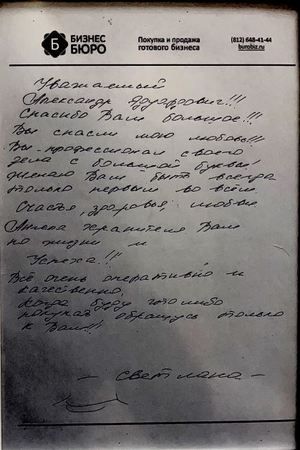 БИЗНЕС
БЮРО
Покупка и продажа
готового бизнеса
(812) 648-41-44
burobiz.ru
Уважаемый
Александр Эдуардович!!!
Спасибо Вам большое!!!
Вы спасли мою любовь!!!
Вы профессионал своего
дела с большой буквы!
желаю Вам быть всегда
только первым во всём.
Счастья, здоровья, любви
Ангела хранителя Вам
по жизни и
Успеха!!!
Всё очень оперативно и
качественно,
когда буду что либо
покупать обращусь только
к Вам!!!
- Светлана -